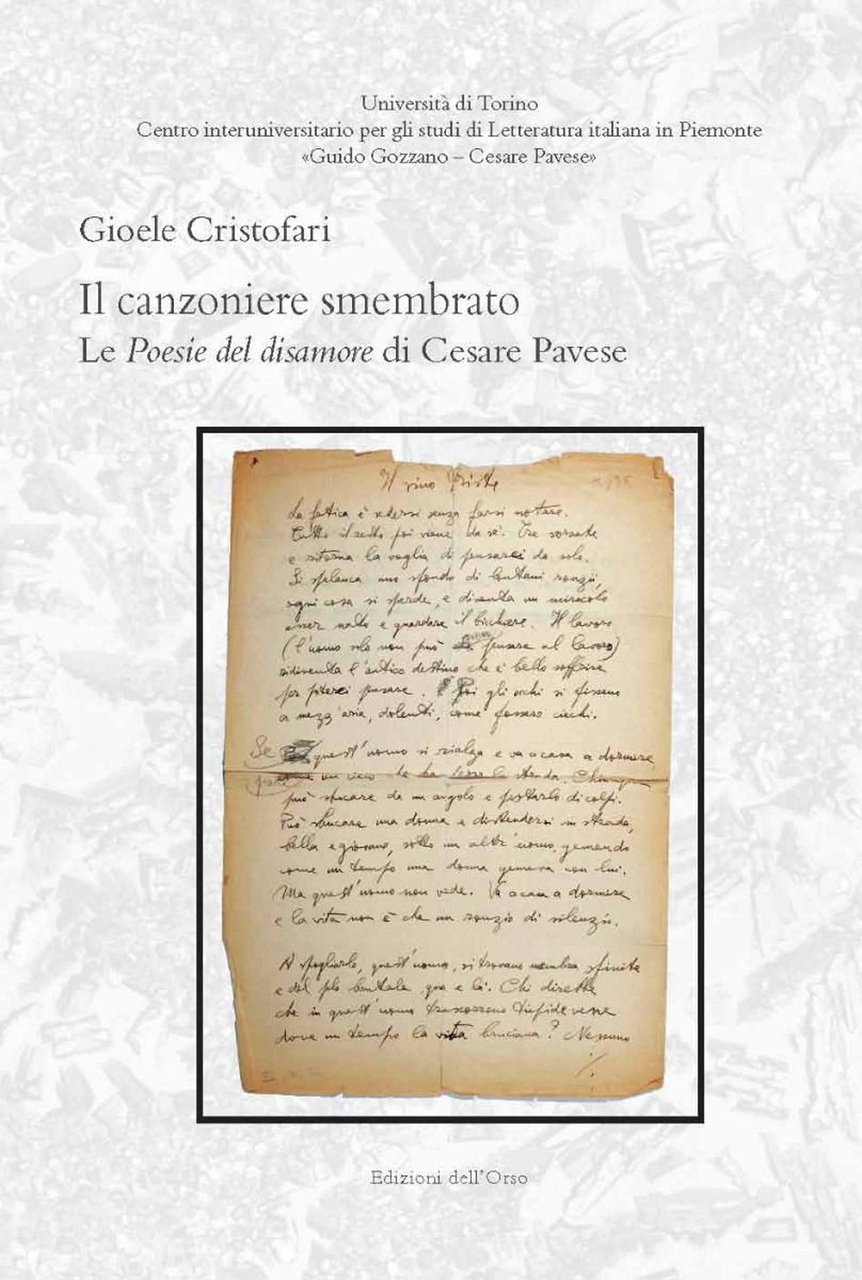 Università di Torino
Centro interuniversitario per gli studi di Letteratura italiana in Piemonte
«Guido Gozzano – Cesare Pavese»
Gioele Cristofari
Il canzoniere smembrato
Le Poesie del disamore di Cesare Pavese
Il vino triste
La fatica è sedersi senza farsi notare.
Tutto il resto poi viene da sé. Tre sorsate
e ritorna la voglia di pensarci da solo.
Si spalanca uno sfondo di lontani ronzii,
ogni cosa si sperde, e diventa un miracolo
esser nato e guardare il bicchiere. Il lavoro
(l'uomo solo non può pensare al lavoro)
ridiventa l'antico destino che è bello soffrire
per poterci pensare. Poi gli occhi si fissano
a mezz'aria, dolenti, come fossero ciechi.
Se quest'uomo si rialza e va a casa a dormire
pare un cieco che ha perso la strada. Chiunque
può sbucare da un angolo e pestarlo di colpi.
Può sbucare una donna e distendersi in strada,
bella e giovane, sotto un altr'uomo, gemendo
come un tempo una donna gemeva con lui.
Ma quest'uomo non vede. Va a casa a dormire
e la vita non è che un ronzio di silenzio.
A spogliarlo, quest'uomo, si trovano membra sfinite
e del pelo brutale qua e là. Chi direbbe
che in quest'uomo trascorrono tiepide vene
dove un tempo la vita bruciava? Nessuno
./.
Edizioni dell'Orso